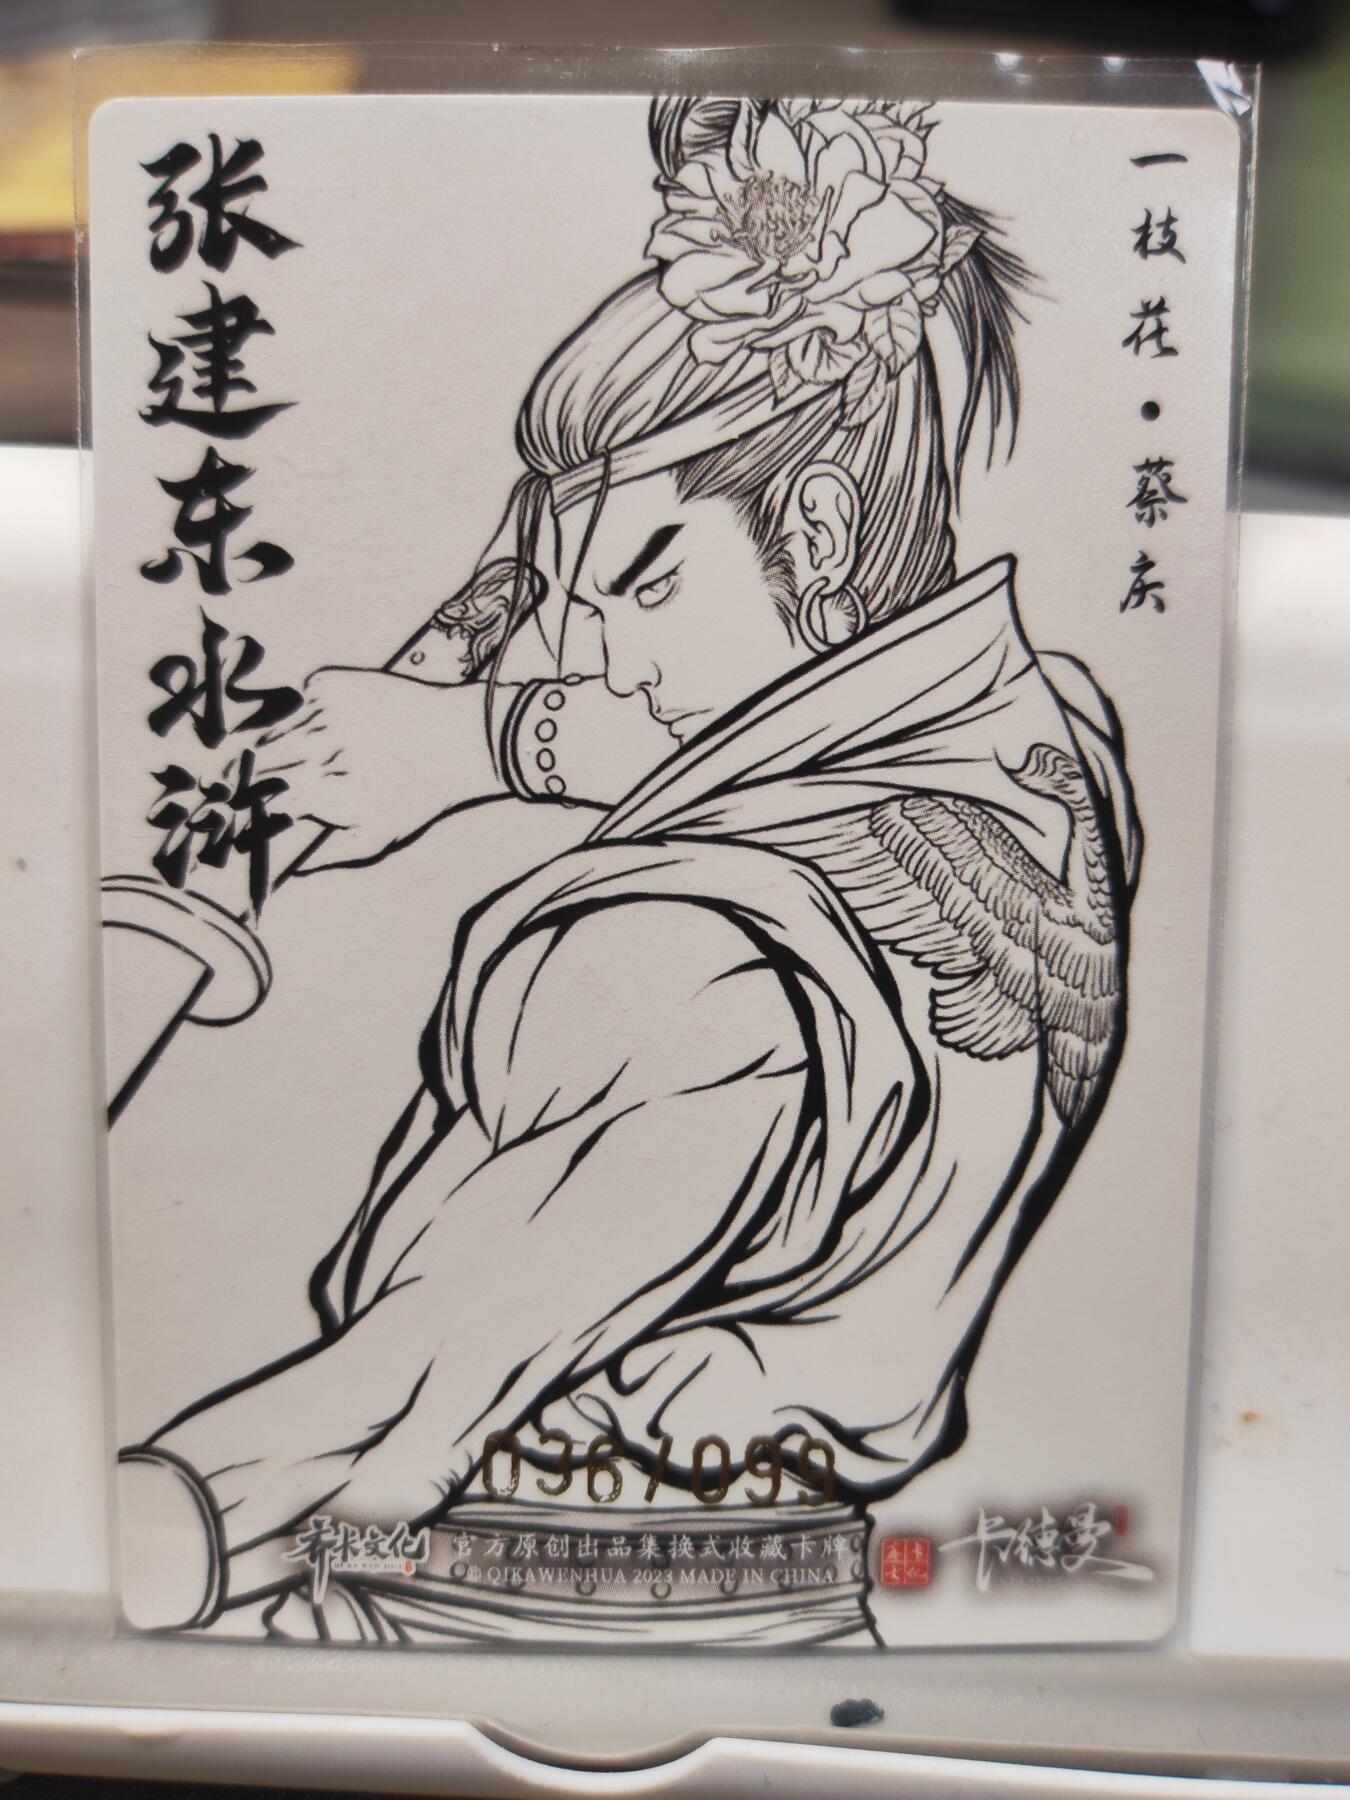 张建东水浒
一枝花·蔡庆
036/099
齐卡文化
QI KA WEN HUA
官方原创出品集换式收藏卡牌
© QIKAWENHUA 2023 MADE IN CHINA
卡德曼